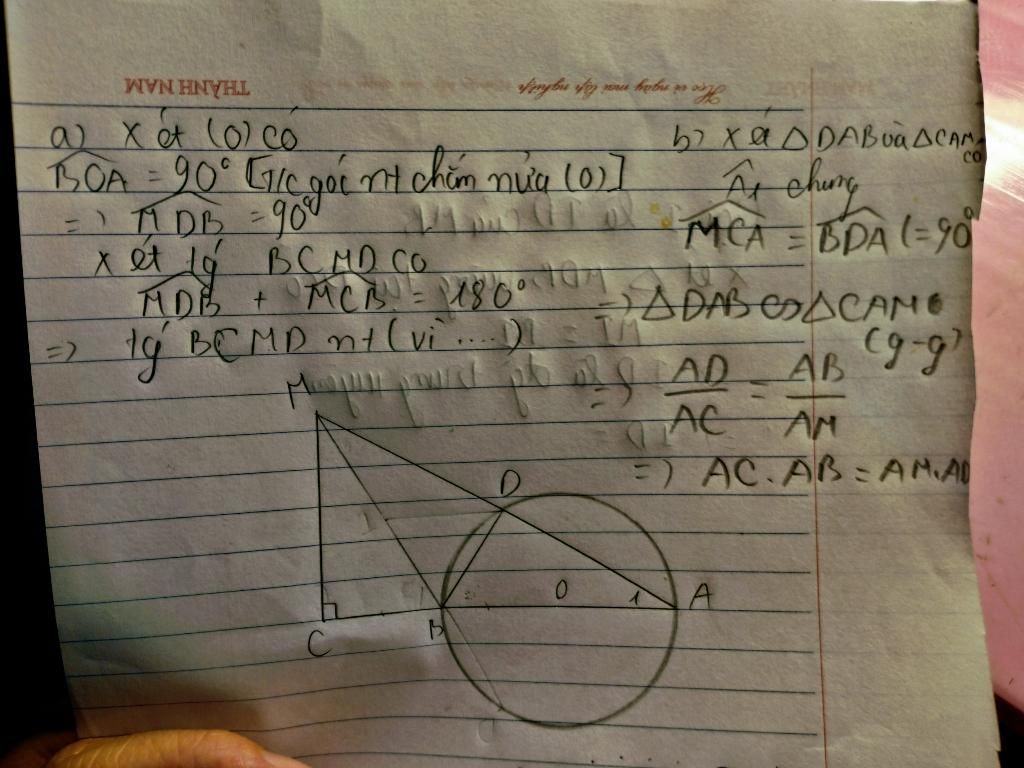 THÀNH NAM
Học vì ngày mai lập nghiệp
a) Xét (O) có
BOA = 90° [T/c góc nt chắn nửa (O)]
=> MDB = 90°
Xét tg BCMD có
MDB + MCB = 180°
=> tg BCMD nt (vì ....)
b) Xét △DAB và △CAM có
Â₁ chung
MCA = BDA (= 90°
=> △DAB ∽ △CAM
(g-g)
=> AD/AC = AB/AM
=> AC.AB = AM.AD
M
D
O
1
A
B
C